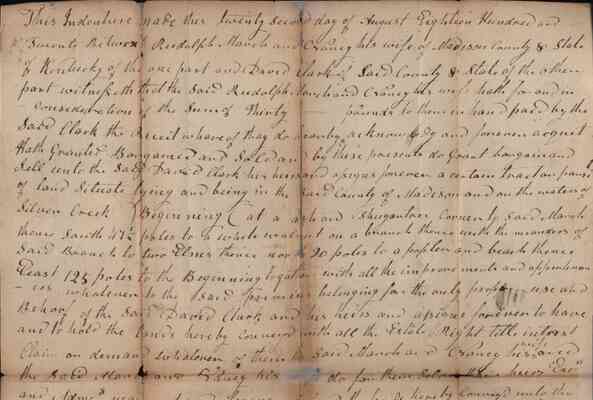 This Indenture made this twenty second day of August Eighteen Hundred and
Twenty Betwext Rudolph March and Craney his wife of Madison County & State
of Kentucky of the one part and David Clark of Said County & State of the other
part witnesseth that the Said Rudolph March and Craney his wife hath for and in
Consideration of the Sum of Thirty pounds to them in hand paid by the
Said Clark the receit whareof they do hearby acknowledg and forever acquit
Hath Granted Bargained and Sold and by these presents do Grant bargain and
Sell unto the Said David Clark his heirs and asigns forever a certain tract or parcel
of land Situate lying and being in the Said County of Madison and on the waters of
Silver Creek (Beginning) at a ash and Shugartree Corner to Said March
thence South 47½ poles to a white walnut on a branch thence with the meanders of
Said Branch to two Elms thence north 20 poles to a poplar and beach thence
East 125 poles to the Beginning togather with all the improvements and appurtenan
-ces whatsoever to the Said premises belonging for the only proper use and
Behoof of the Said David Clark and his heirs and asigns forever to have
and to hold the Lands hereby conveied with all the Estate Right title intrest
Claim or demand whatsoever of them the Said March and Craney his wife and
the Said March and Craney his do for them Selves their heirs Exrs
and hereby conveyed unto the